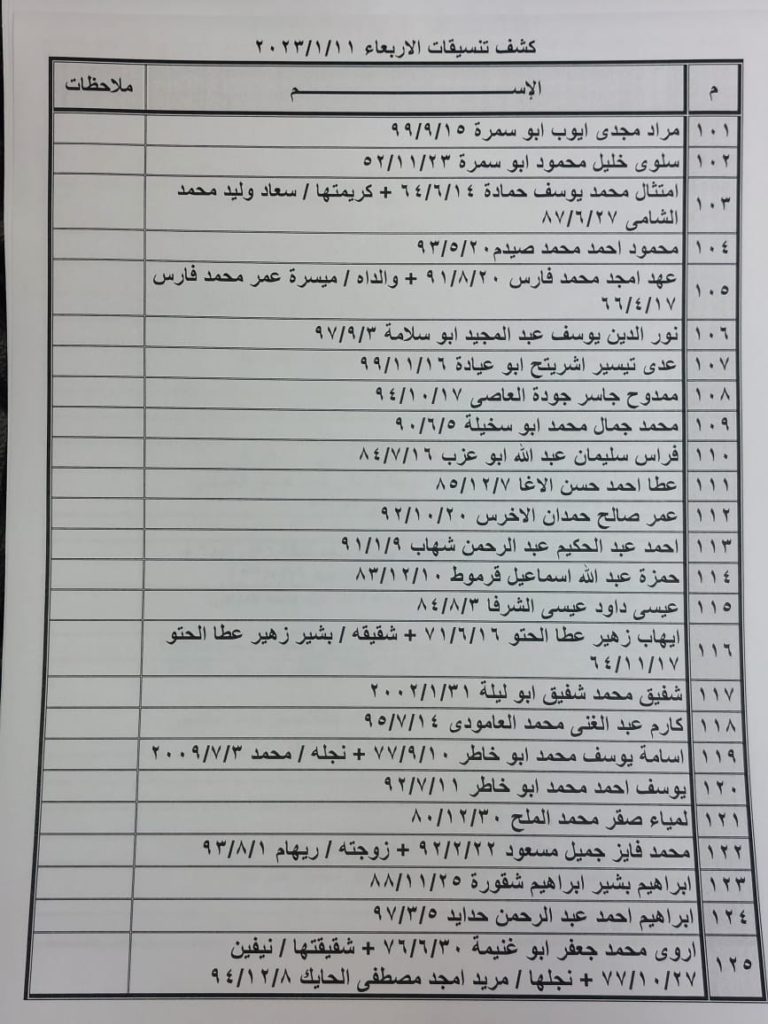 كشف تنسيقات الاربعاء ٢٠٢٣/١/١١
م الإســـم ملاحظات
١٠١ مراد مجدى ايوب ابو سمرة ٩٩/٩/١٥
١٠٢ سلوى خليل محمود ابو سمرة ٥٢/١١/٢٣
١٠٣ امتثال محمد يوسف حمادة ٦٤/٦/١٤ + كريمتها / سعاد وليد محمد
الشامى ٨٧/٦/٢٧
١٠٤ محمود احمد محمد صيدم ٩٣/٥/٢٠
١٠٥ عهد امجد محمد فارس ٩١/٨/٢٠ + والداه / ميسرة عمر محمد فارس
٦٦/٤/١٧
١٠٦ نور الدين يوسف عبد المجيد ابو سلامة ٩٧/٩/٣
١٠٧ عدى تيسير اشريتح ابو عيادة ٩٩/١١/١٦
١٠٨ ممدوح جاسر جودة العاصى ٩٤/١٠/١٧
١٠٩ محمد جمال محمد ابو سخيلة ٩٠/٦/٥
١١٠ فراس سليمان عبد الله ابو عزب ٨٤/٧/١٦
١١١ عطا احمد حسن الاغا ٨٥/١٢/٧
١١٢ عمر صالح حمدان الاخرس ٩٢/١٠/٢٠
١١٣ احمد عبد الحكيم عبد الرحمن شهاب ٩١/١/٩
١١٤ حمزة عبد الله اسماعيل قرموط ٨٣/١٢/١٠
١١٥ عيسى داود عيسى الشرفا ٨٤/٨/٣
١١٦ ايهاب زهير عطا الحتو ٧١/٦/١٦ + شقيقه / بشير زهير عطا الحتو
٦٤/١١/١٧
١١٧ شفيق محمد شفيق ابو ليلة ٢٠٠٢/١/٣١
١١٨ كارم عبد الغنى محمد العامودى ٩٥/٧/١٤
١١٩ اسامة يوسف محمد ابو خاطر ٧٧/٩/١٠ + نجله / محمد ٢٠٠٩/٧/٣
١٢٠ يوسف احمد محمد ابو خاطر ٩٢/٧/١١
١٢١ لمياء صقر محمد الملح ٨٠/١٢/٣٠
١٢٢ محمد فايز جميل مسعود ٩٢/٢/٢٢ + زوجته / ريهام ٩٣/٨/١
١٢٣ ابراهيم بشير ابراهيم شقورة ٨٨/١١/٢٥
١٢٤ ابراهيم احمد عبد الرحمن حدايد ٩٧/٣/٥
١٢٥ اروى محمد جعفر ابو غنيمة ٧٦/٦/٣٠ + شقيقتها / نيفين
٧٧/١٠/٢٧ + نجلها / مريد امجد مصطفى الحايك ٩٤/١٢/٨